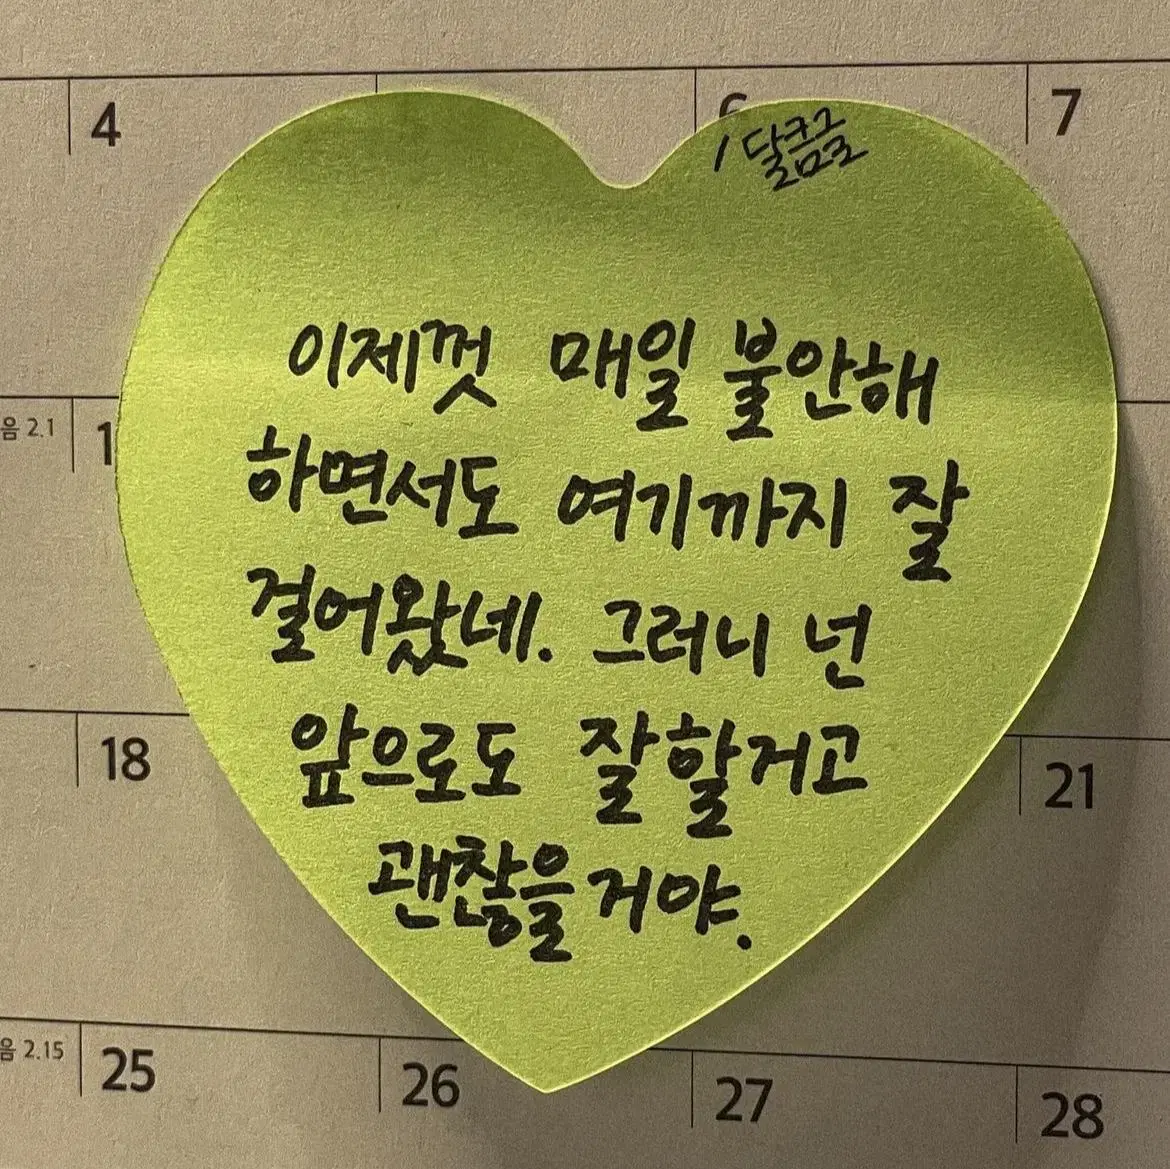 4
7
/달콤글
이제껏 매일 불안해
하면서도 여기까지 잘
걸어왔네. 그러니 넌
앞으로도 잘할거고
괜찮을거야.
음 2.1
18
21
음 2.15
25
26
27
28